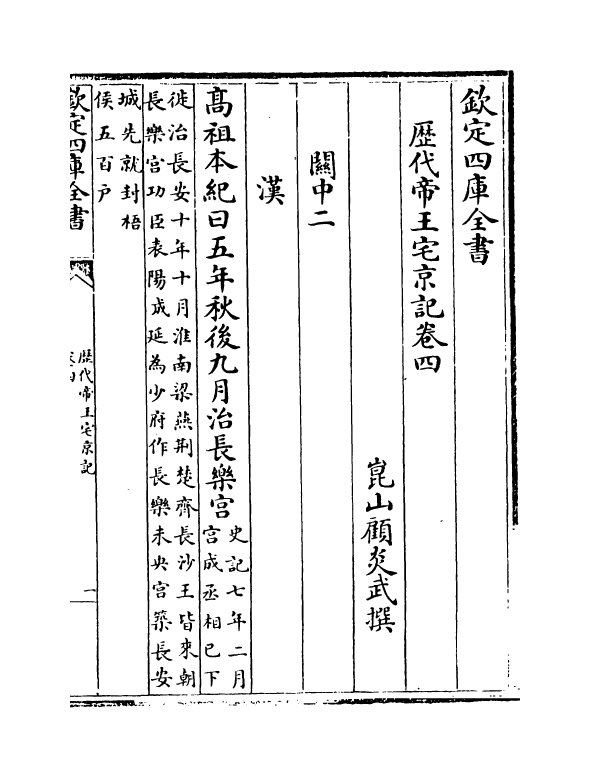 欽定四庫全書
歷代帝王宅京記卷四
崑山顧炎武撰
關中二
漢
高祖本紀曰五年秋後九月治長樂宫
史記七年二月
宫成丞相已下
徙治長安十年十月淮南梁燕荆楚齊長沙王皆來朝
長樂宫功臣表陽成延為少府作長樂未央宫築長安
城先就封梧
侯五百戶
欽定四庫全書
歷代帝王宅京記
一